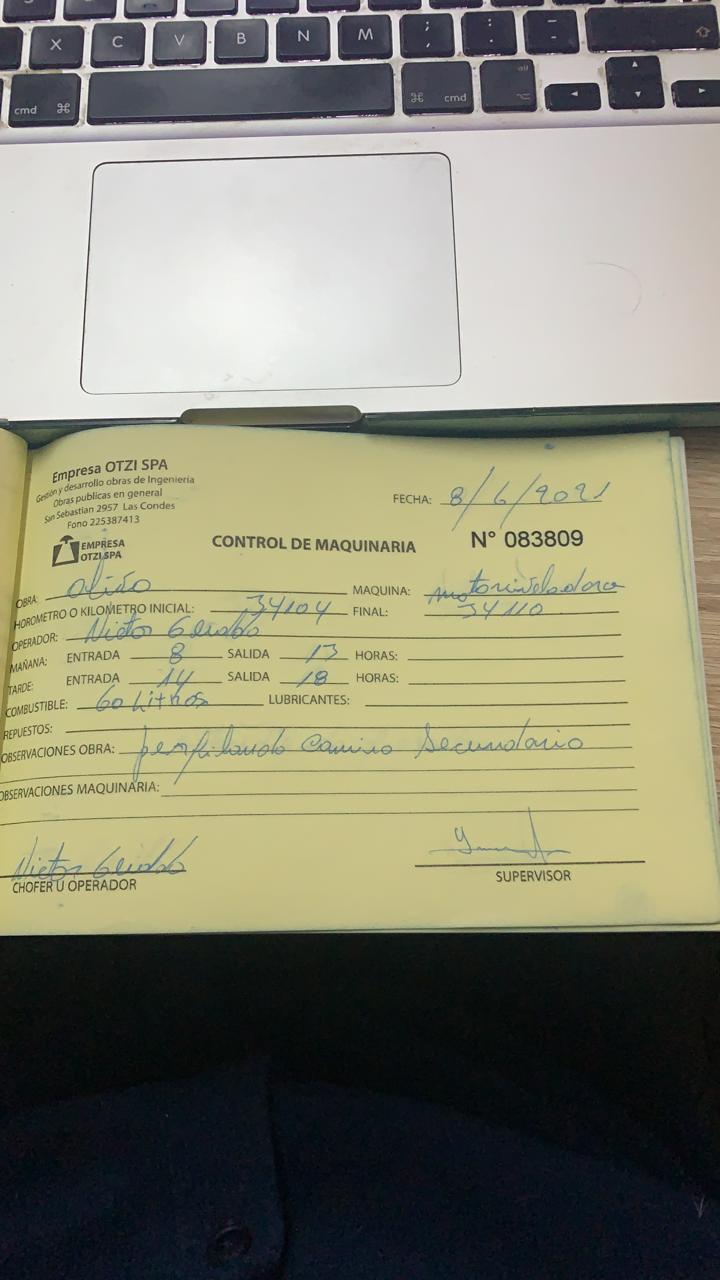 X C V B N M ; , : . _ -
cmd ⌘ ⌘ cmd alt ⌥
Empresa OTZI SPA
Gestión y desarrollo obras de Ingenieria
Obras publicas en general
San Sebastian 2957 Las Condes
Fono 225387413
EMPRESA
OTZI SPA
FECHA: 8/6/2021
CONTROL DE MAQUINARIA
N° 083809
OBRA: MAQUINA: motoniveladora
HOROMETRO O KILOMETRO INICIAL: 34104 FINAL: 34110
OPERADOR: Victor
MAÑANA: ENTRADA 8 SALIDA 13 HORAS:
TARDE: ENTRADA 14 SALIDA 18 HORAS:
COMBUSTIBLE: 60 Litros LUBRICANTES:
REPUESTOS:
OBSERVACIONES OBRA: perfilando Camino Secundario
OBSERVACIONES MAQUINARIA:
Victor
CHOFER U OPERADOR
SUPERVISOR